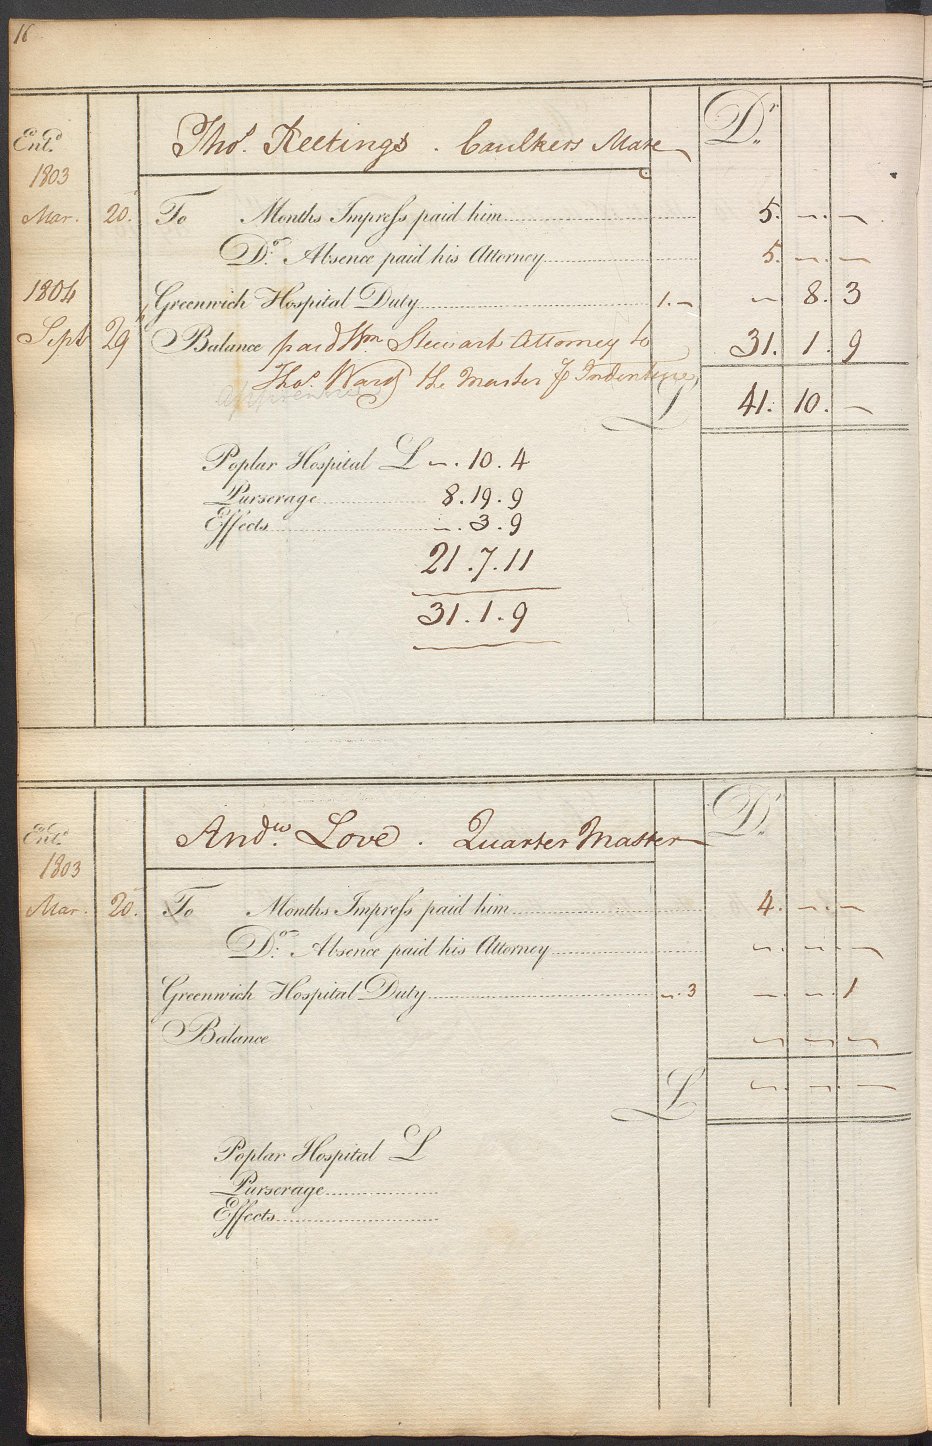 16
Entd
1803
Thos. Keetings. Caulkers Mate
Dr.
Mar. 20. To Months Impress paid him 5. - . -
Do. Absence paid his Attorney 5. - . -
1804
Greenwich Hospital Duty 1. - - 8. 3
Sept 29 Balance paid Wm. Stewart Attorney to 31. 1. 9
Thos. Ward the Master P Indenture,
apprentice
L 41. 10. -
Poplar Hospital L - . 10 . 4
Purserage 8 . 19 . 9
Effects - . 3 . 9
21 . 7 . 11
31 . 1 . 9
Entd.
1803
Andw. Love. Quarter Master
Dr.
Mar. 20. To Months Impress paid him 4. - . -
Do. Absence paid his Attorney - . - . -
Greenwich Hospital Duty - . 3 - . - . 1
Balance - - -
L - . - . -
Poplar Hospital L
Purserage
Effects